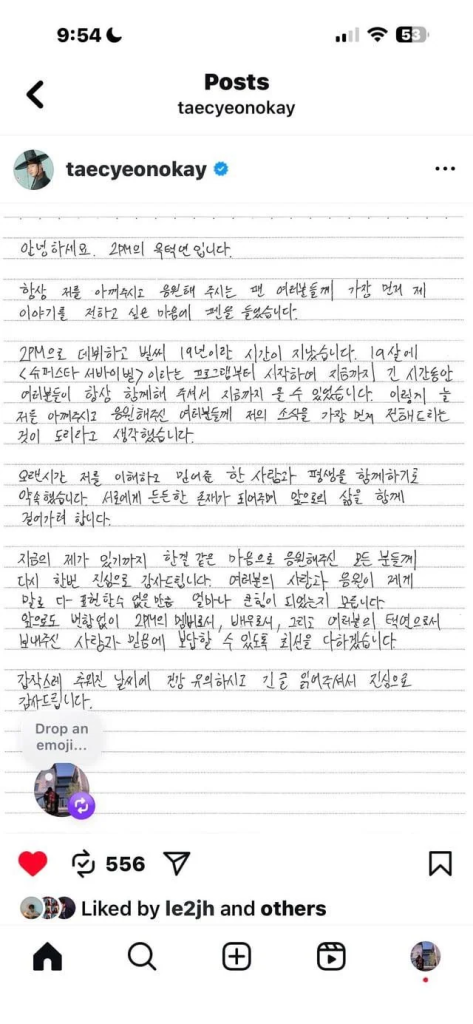 9:54
53
Posts
taecyeonokay
taecyeonokay
안녕하세요. 2PM의 옥택연입니다.
항상 저를 아껴주시고 응원해 주시는 팬 여러분들께 가장 먼저 제
이야기를 전하고 싶은 마음에 펜을 들었습니다.
2PM으로 데뷔하고 벌써 19년이란 시간이 지났습니다. 19살에
<슈퍼스타 서바이벌>이라는 프로그램부터 시작하여 지금까지 긴 시간동안
여러분들이 항상 함께해 주셔서 지금까지 올 수 있었습니다. 이렇게 늘
저를 아껴주시고 응원해주신 여러분들께 저의 소식을 가장 먼저 전해드리는
것이 도리라고 생각했습니다.
오랜시간 저를 이해하고 믿어준 한 사람과 평생을 함께하기로
약속했습니다. 서로에게 든든한 존재가 되어주며 앞으로의 삶을 함께
걸어가려 합니다.
지금의 제가 있기까지 한결 같은 마음으로 응원해주신 모든 분들께
다시 한번 진심으로 감사드립니다. 여러분의 사랑과 응원이 제게
말로 다 표현할수 없을 만큼 얼마나 큰힘이 되었는지 모릅니다.
앞으로도 변함없이 2PM의 멤버로서, 배우로서, 그리고 여러분의 택연으로서
보내주신 사랑과 믿음에 보답할 수 있도록 최선을 다하겠습니다.
갑작스레 추워진 날씨에 건강 유의하시고 긴글 읽어주셔서 진심으로
감사드립니다.
Drop an
emoji...
556
Liked by le2jh and others